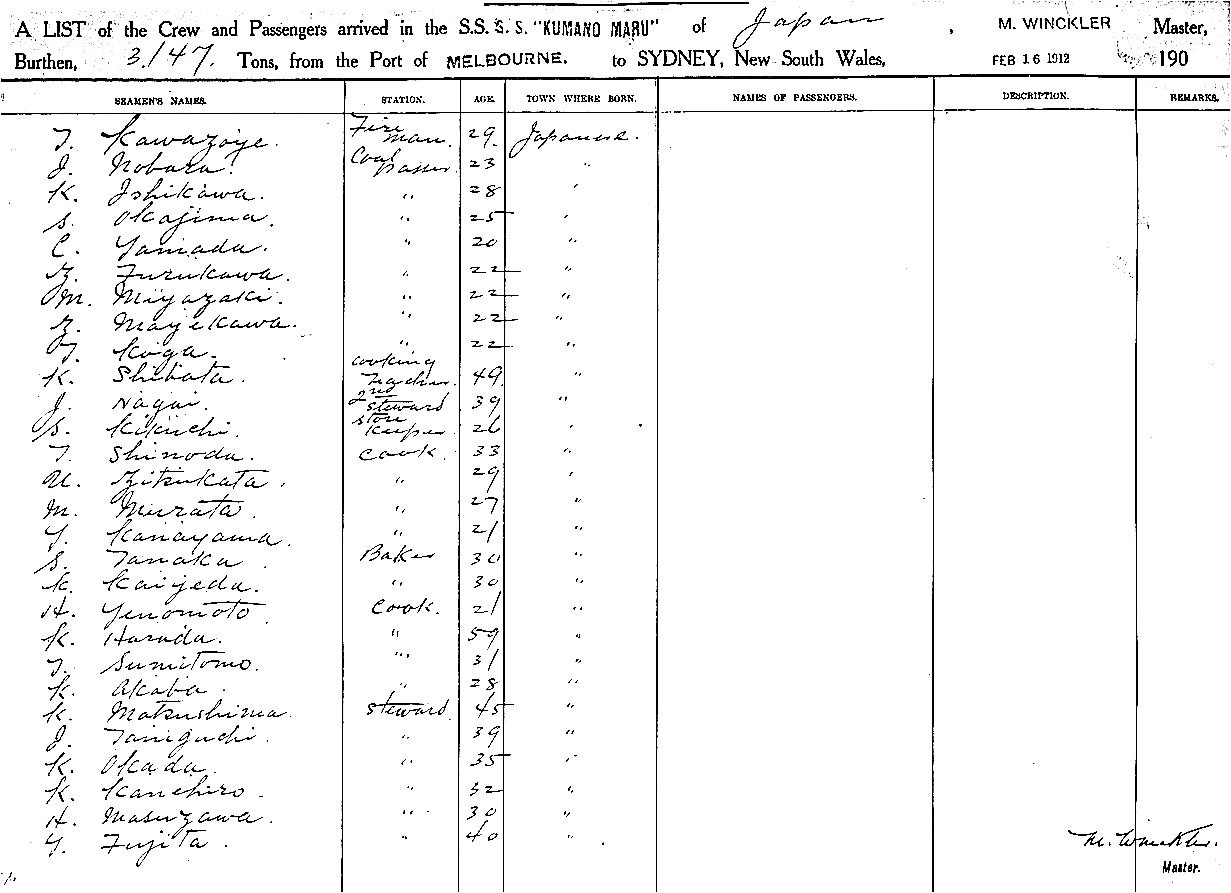 A LIST of the Crew and Passengers arrived in the S.S. S. S. "KUMANO MARU" of Japan , M. WINCKLER Master,
Burthen, 3147. Tons, from the Port of MELBOURNE. to SYDNEY, New South Wales, FEB 16 1912 190
SEAMEN'S NAMES. STATION. AGE. TOWN WHERE BORN. NAMES OF PASSENGERS. DESCRIPTION. REMARKS.
T. Kawazoye. Fire man. 29. Japanese.
J. Nobara. Coal passer 23 "
K. Ishikawa. " 28 "
S. Okajima. " 25 "
C. Yamada. " 20 "
Furukawa. " 22 "
M. Miyazaki. " 22 "
Mayekawa. " 22 "
Koga. " 22 "
K. Shibata. cooking 49 "
J. Nagai. 2nd steward 39 "
S. Kikuchi. store keeper 26 "
T. Shinoda. cook. 33 "
U. 29 "
M. Murata. " 27 "
Y. Kanayama. " 21 "
S. Tanaka Baker 30 "
K. Kaiyeda. " 30 "
H. Yenomoto cook. 21 "
K. Harada. " 59 "
T. Sumitomo. " 31 "
K. Akaba. " 28 "
K. Matsushima. steward 45 "
J. Taniguchi. " 39 "
K. Okada. " 35 "
K. Kanehiro. " 32 "
H. Masuzawa. " 30 "
Y. Fujita. " 40 "
M. Winckler.
Master.